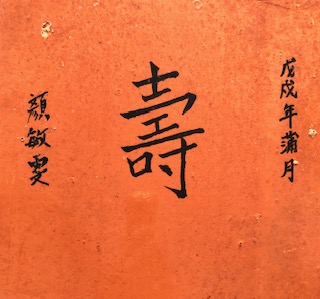 戊戌年蒲月
壽
顏敏雯